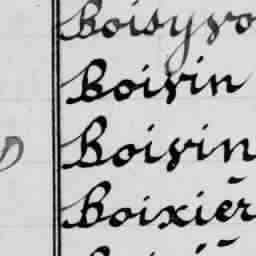 Boisyvo
Boivin
Boivin
Boixièr